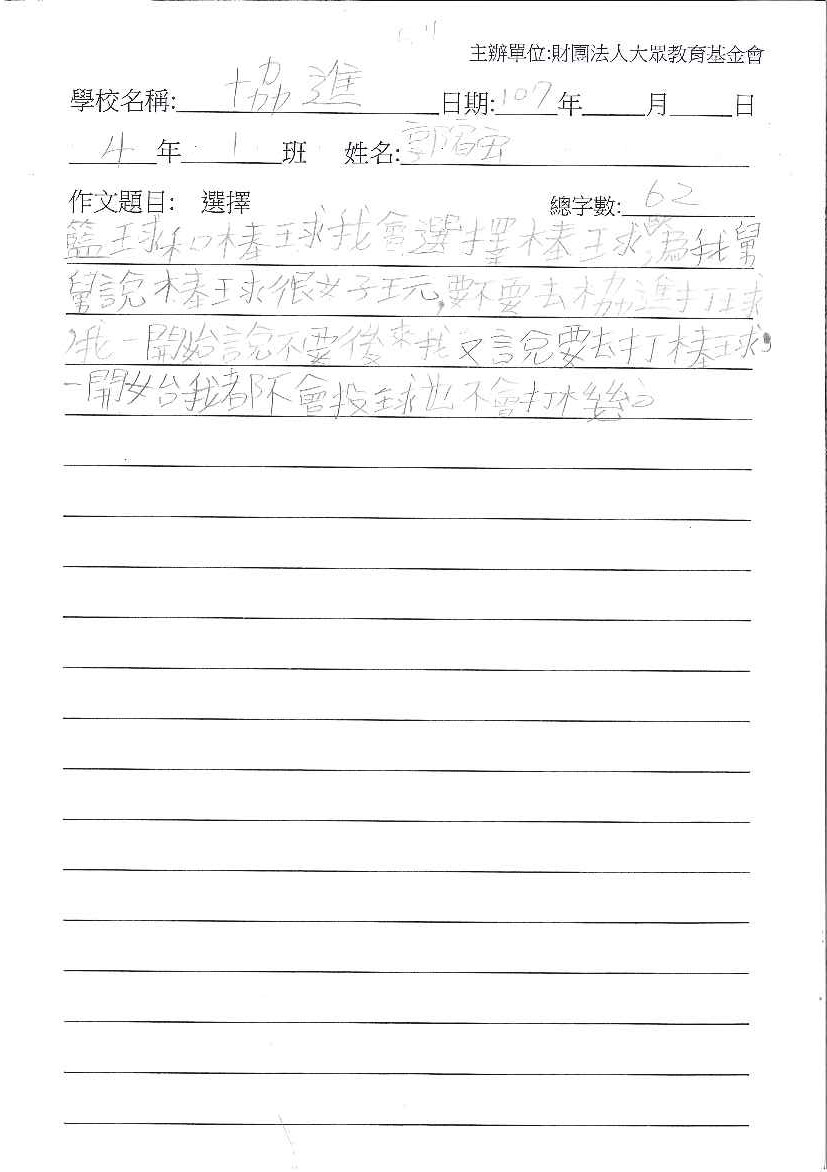 主辦單位:財團法人大眾教育基金會
學校名稱: 協進 日期: 107 年 月 日
4 年 1 班 姓名: 郭宥宏
作文題目: 選擇 總字數: 62
籃球和棒球我會選擇棒球,因為我舅
舅說棒球很好玩,要不要去協進打球
,我一開始說不要後來我又說要去打棒球,
一開始我都不會投球也不會打